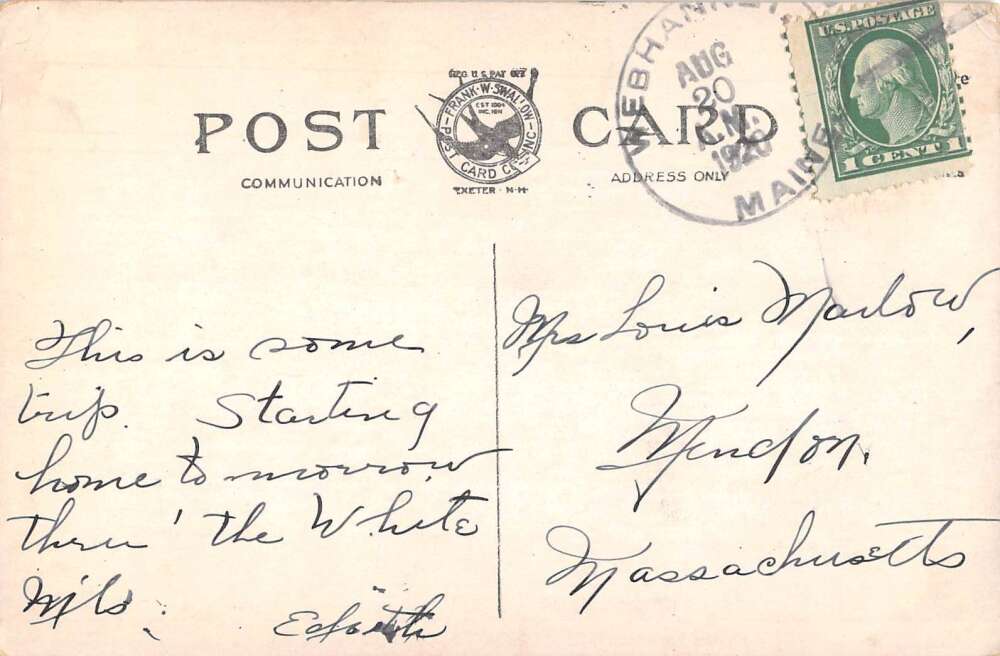 REG U.S. PAT OFF
FRANK·W·SWALLOW
EST 1904
INC. 1914
POST CARD CO. INC.
EXETER · N·H·
POST CARD
COMMUNICATION
ADDRESS ONLY
WEBHANNET
AUG
20
A.M.
1920
MAINE
U.S. POSTAGE
1 CENT 1
This is some
trip. Starting
home to morrow
thru' the White
Mts.
Edith
Mrs Louis Marlow,
Mendon,
Massachusetts